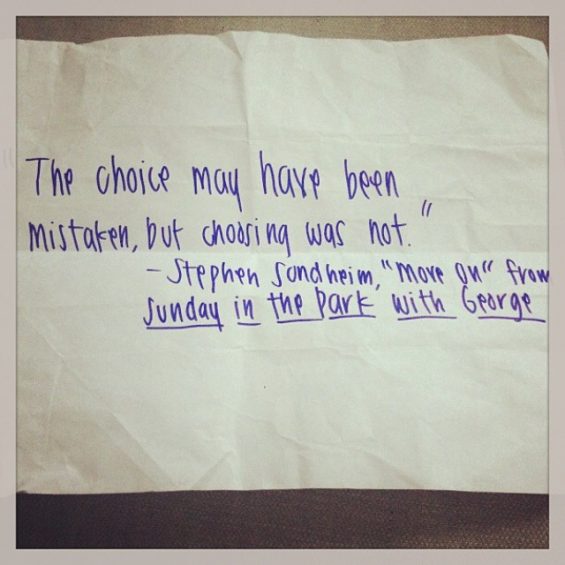 The choice may have been
mistaken, but choosing was not."
- Stephen Sondheim, "Move On" from
Sunday in the Park with George